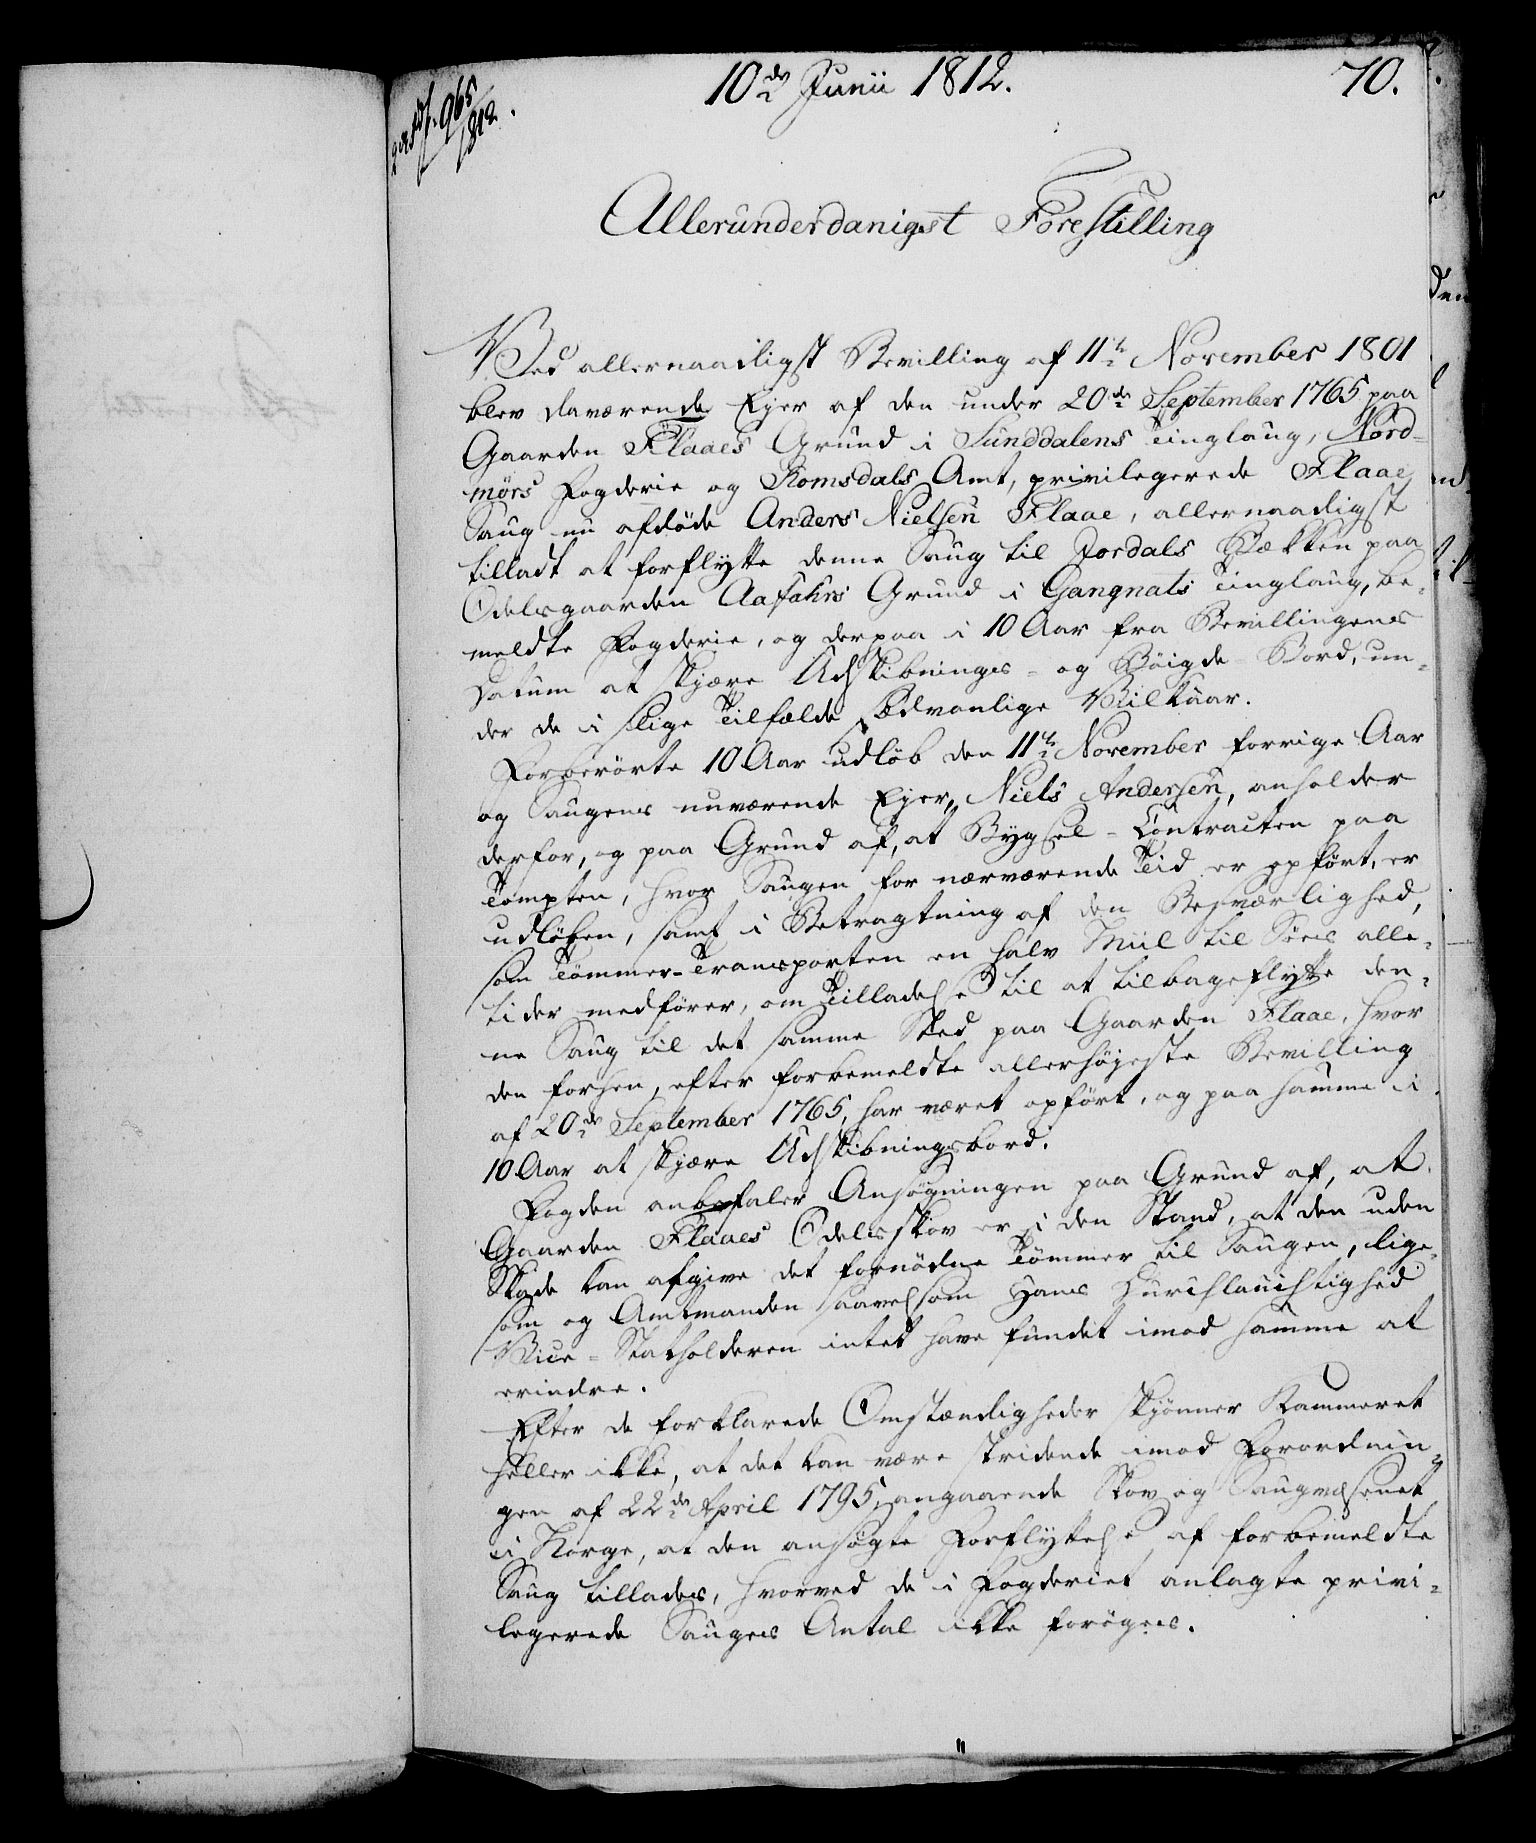 10de Junii 1812.
70.
965/1812.
Allerunderdanigst Forestilling
Ved allernaadigst Bevilling af 11te November 1801
blev daværende Ejer af den under 20de September 1765 paa
Gaarden Flaaes Grund i Sunddalens Tinglaug, Nord-
mörs Fogderie og Romsdals Amt, privilegerede Flaae
Saug nu afdöde Anders Nielsen Flaae, allernaadigst
tilladt at forflytte denne Saug til Jordals Bækken paa
Odelsgaarden Aafahrs Grund i Gangnats Tinglaug, be-
meldte Fogderie, og derpaa i 10 Aar fra Bevillingens
Datum at skjære Udskibnings- og Böigde-Bord, un-
der de i slige Tilfælde sædvanlige Vilkaar.
Forberörte 10 Aar udlöb den 11te November forrige Aar
og Saugens nuværende Ejer, Niels Andersen, anholder
derfor, og paa Grund af, at Bygsel-Contracten paa
Tompten, hvor Saugen for nærværende Tid er opfört, er
udlöben, samt i Betragtning af den Besværlighed,
som Tömmer-Transporten en halv Miil til Söes alle-
tider medförer, om Tilladelse til at tilbageflytte den-
ne Saug til det samme Sted paa Gaarden Flaae, hvor
den forhen, efter forbemeldte allerhöjeste Bevilling
af 20de September 1765, har været opfört, og paa samme i
10 Aar at skjære Udskibningsbord.
Fogden anbefaler Ansögningen paa Grund af, at
Gaarden Flaaes Odelsskov er i den Stand, at den uden
Skade kan afgive det fornödne Tömmer til Saugen, lige-
som og Amtmanden saavelsom Hans Durchlauchtighed
Vice-Statholderen intet have fundet imod samme at
erindre.
Efter de forklarede Omstændigheder skjönner Kammeret
heller ikke, at det kan være stridende imod Forordnin-
gen af 22de April 1795, angaaende Skov og Saugvæsenet
i Norge, at den ansögte Forflyttelse af forbemeldte
Saug tillades, hvorved de i Fogderiet anlagte privi-
legerede Sauges Antal ikke foröges.